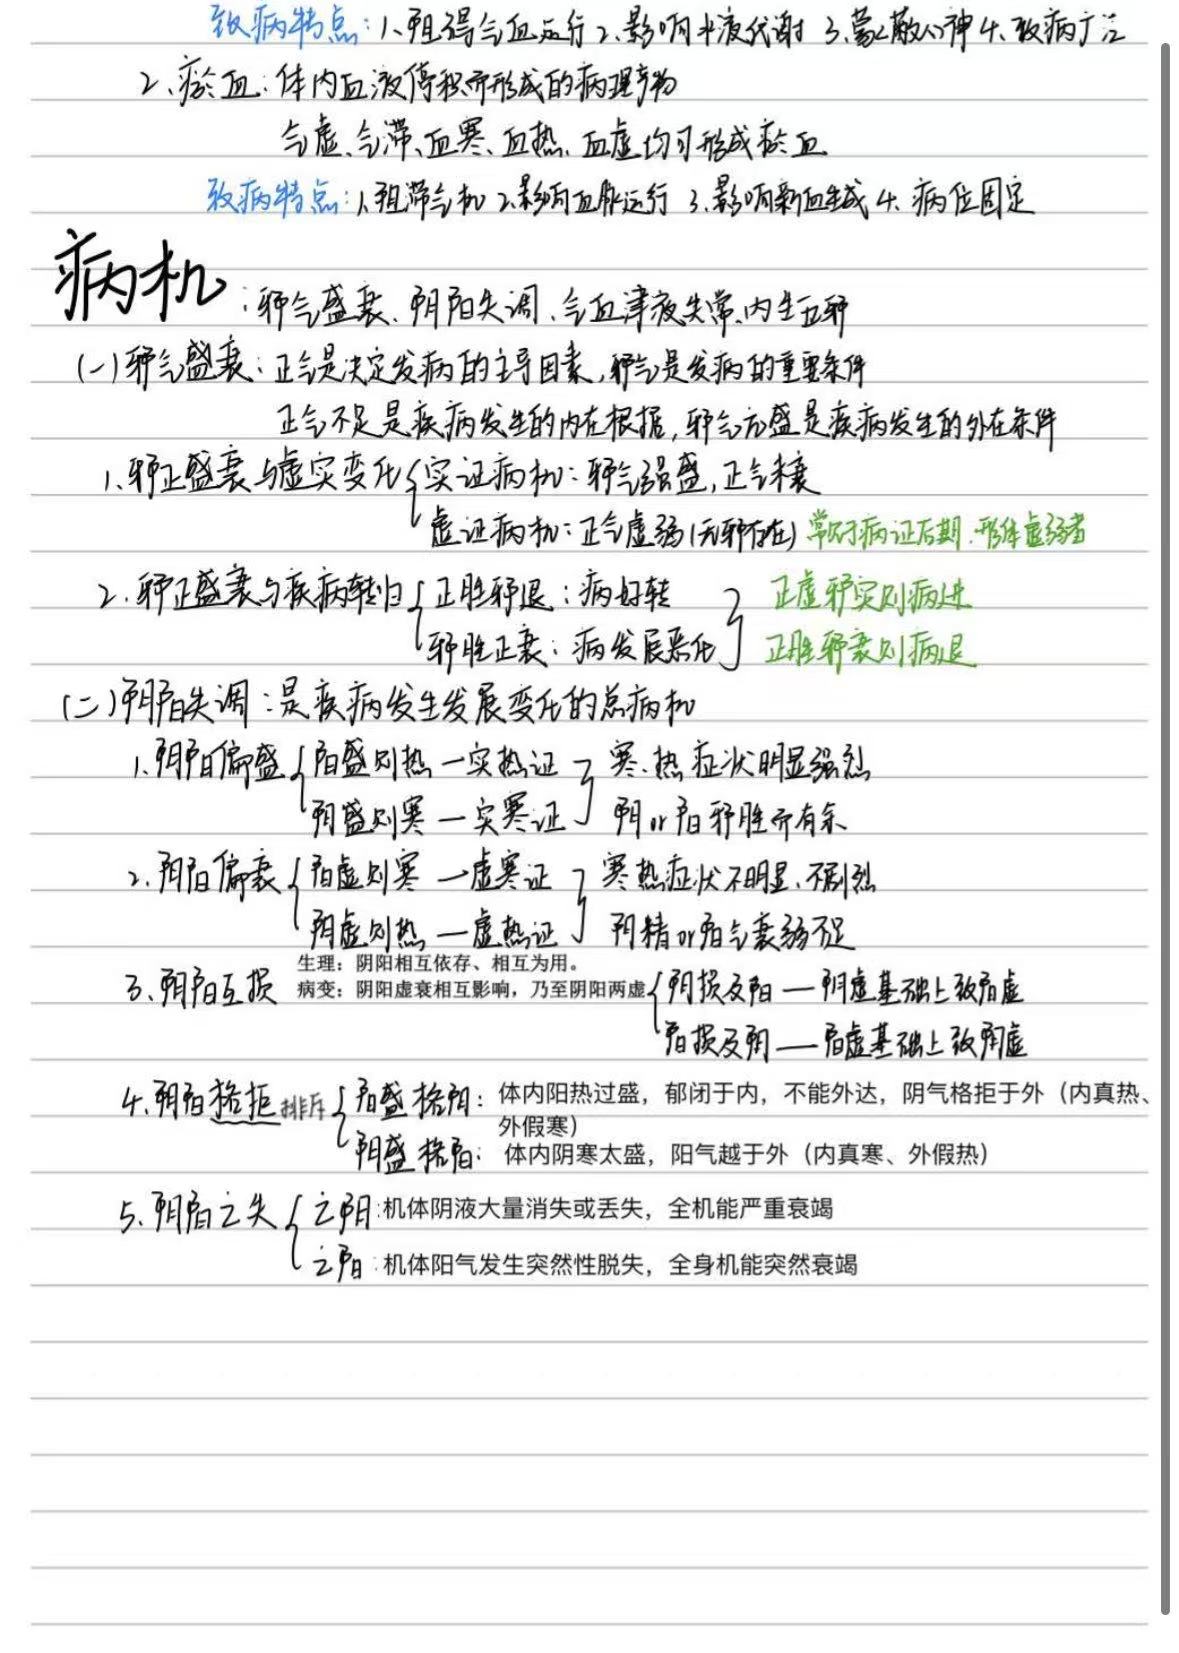 致病特点：1、阻碍气血运行 2、影响水液代谢 3、蒙蔽心神 4、致病广泛
2、瘀血：体内血液停积而形成的病理产物
气虚、气滞、血寒、血热、血虚均可形成瘀血
致病特点：1、阻滞气机 2、影响血脉运行 3、影响新血生成 4、病位固定
病机：邪气盛衰、阴阳失调、气血津液失常、内生五邪
(一)邪气盛衰：正气是决定发病的主导因素，邪气是发病的重要条件
正气不足是疾病发生的内在根据，邪气亢盛是疾病发生的外在条件
1、邪正盛衰与虚实变化 实证病机：邪气强盛，正气未衰
虚证病机：正气虚弱(无邪存在) 常见于病证后期、形体虚弱者
2、邪正盛衰与疾病转归 正胜邪退：病好转 正虚邪实则病进
邪胜正衰：病发展恶化 正胜邪衰则病退
(二)阴阳失调：是疾病发生发展变化的总病机
1、阴阳偏盛 阳盛则热—实热证 寒、热症状明显强烈
阴盛则寒—实寒证 阴or阳邪胜而有余
2、阴阳偏衰 阳虚则寒—虚寒证 寒热症状不明显、不剧烈
阴虚则热—虚热证 阴精or阳气衰弱不足
生理：阴阳相互依存、相互为用。
3、阴阳互损 病变：阴阳虚衰相互影响，乃至阴阳两虚 阴损及阳—阴虚基础上致阳虚
阳损及阴—阳虚基础上致阴虚
4、阴阳格拒 排斥 阳盛格阴：体内阳热过盛，郁闭于内，不能外达，阴气格拒于外（内真热、
外假寒）
阴盛格阳：体内阴寒太盛，阳气越于外（内真寒、外假热）
5、阴阳亡失 亡阴：机体阴液大量消失或丢失，全机能严重衰竭
亡阳：机体阳气发生突然性脱失，全身机能突然衰竭